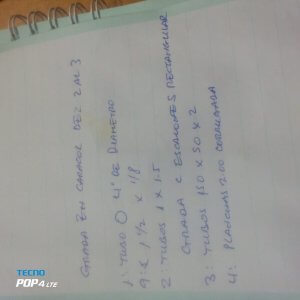 GRADA EN CARACOL DE: 2 AL 3
1: TUBO O 4" DE DIAMETRO
9: L 1 1/2 x 1/8
2: TUBOS 1 x 1.5
GRADA C ESCALONES RECTANGULAR
3: TUBOS 150 x 50 x 2
4: PLANCHAS 2.00 CORRUGADA
TECNO
POP 4 LTE